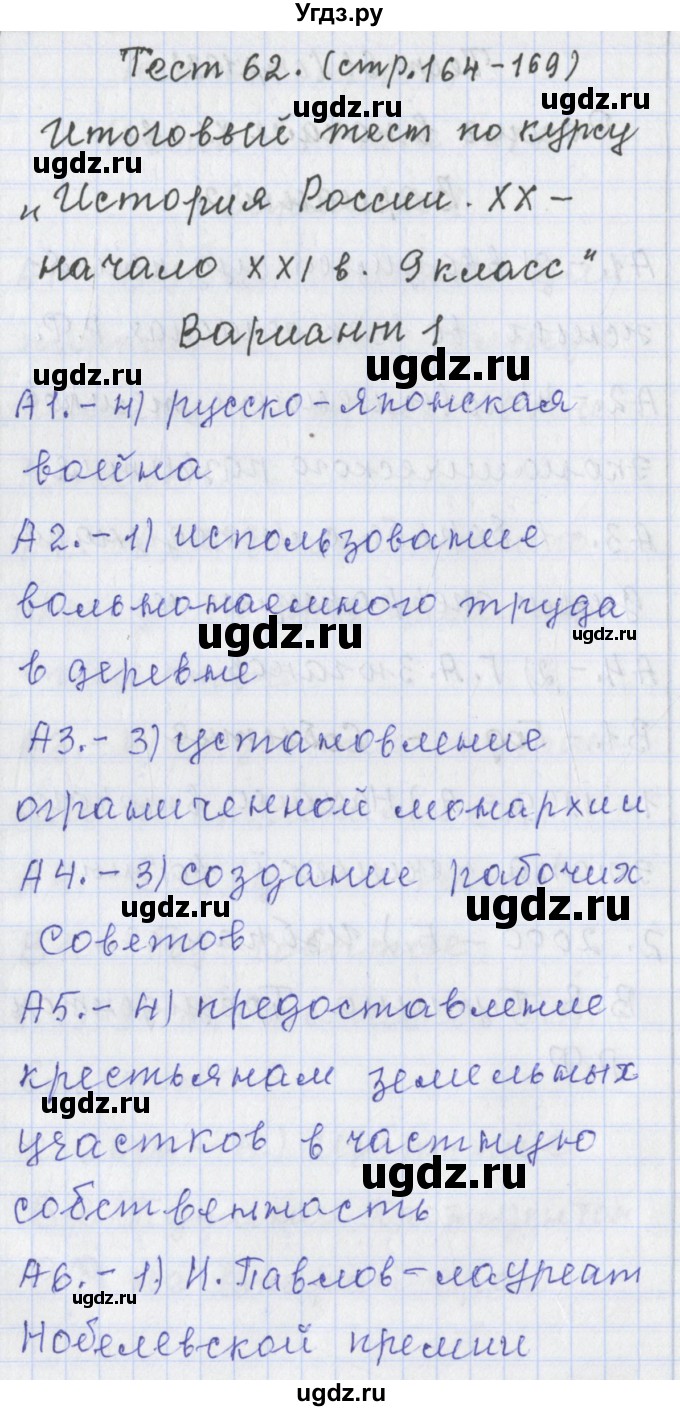 Угдз.ру
Тест 62. (стр.164-169)
Итоговый тест по курсу
ugdz.ru
„История России. XX –
начало XXI в. 9 класс"
Вариант 1
ugdz.ru
ugdz.ru
А1.- 4) русско-японская
война
А2.- 1) использование
вольнонаемного труда
ugdz.ru
ugdz.ru
в деревне
А3.- 3) установление
ограниченной монархии
А4.- 3) создание рабочих
ugdz.ru
ugdz.ru
Советов
А5.- 4) предоставление
крестьянам земельных
ugdz.ru
участков в частную
ugdz.ru
собственность
А6.- 1) И. Павлов-лауреат
ugdz.ru
Нобелевской премии
ugdz.ru